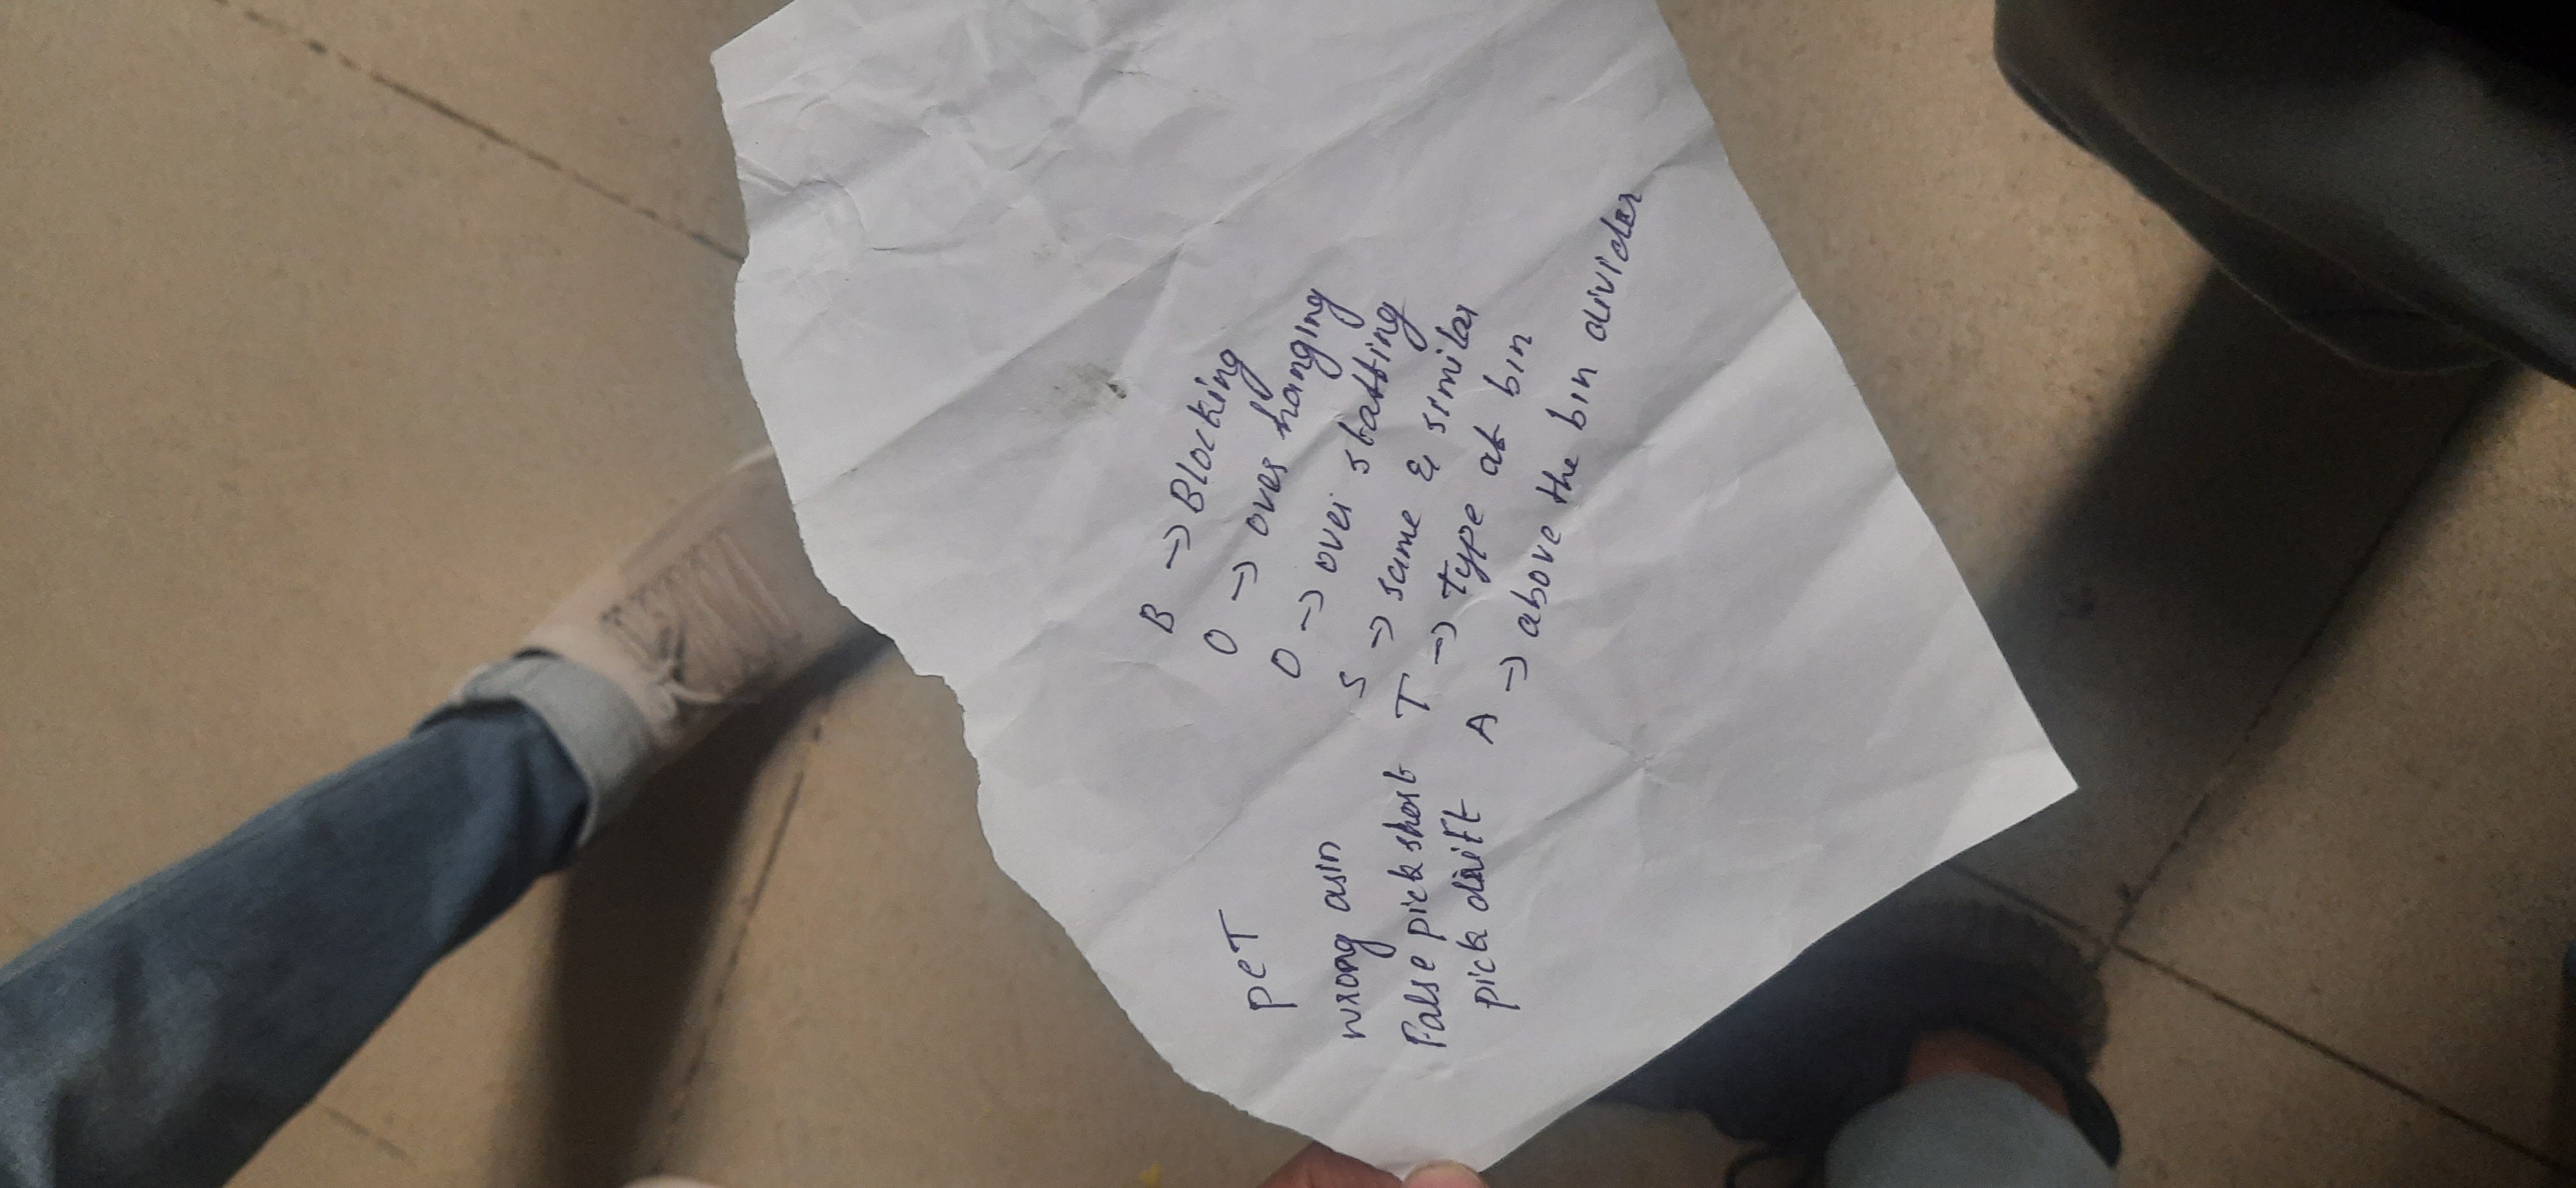 B → Blocking
O → over hanging
O → over statting
S → same & similar
T → type at bin
A → above the bin divider
PeT
wrong asin
False pick short
pick drift